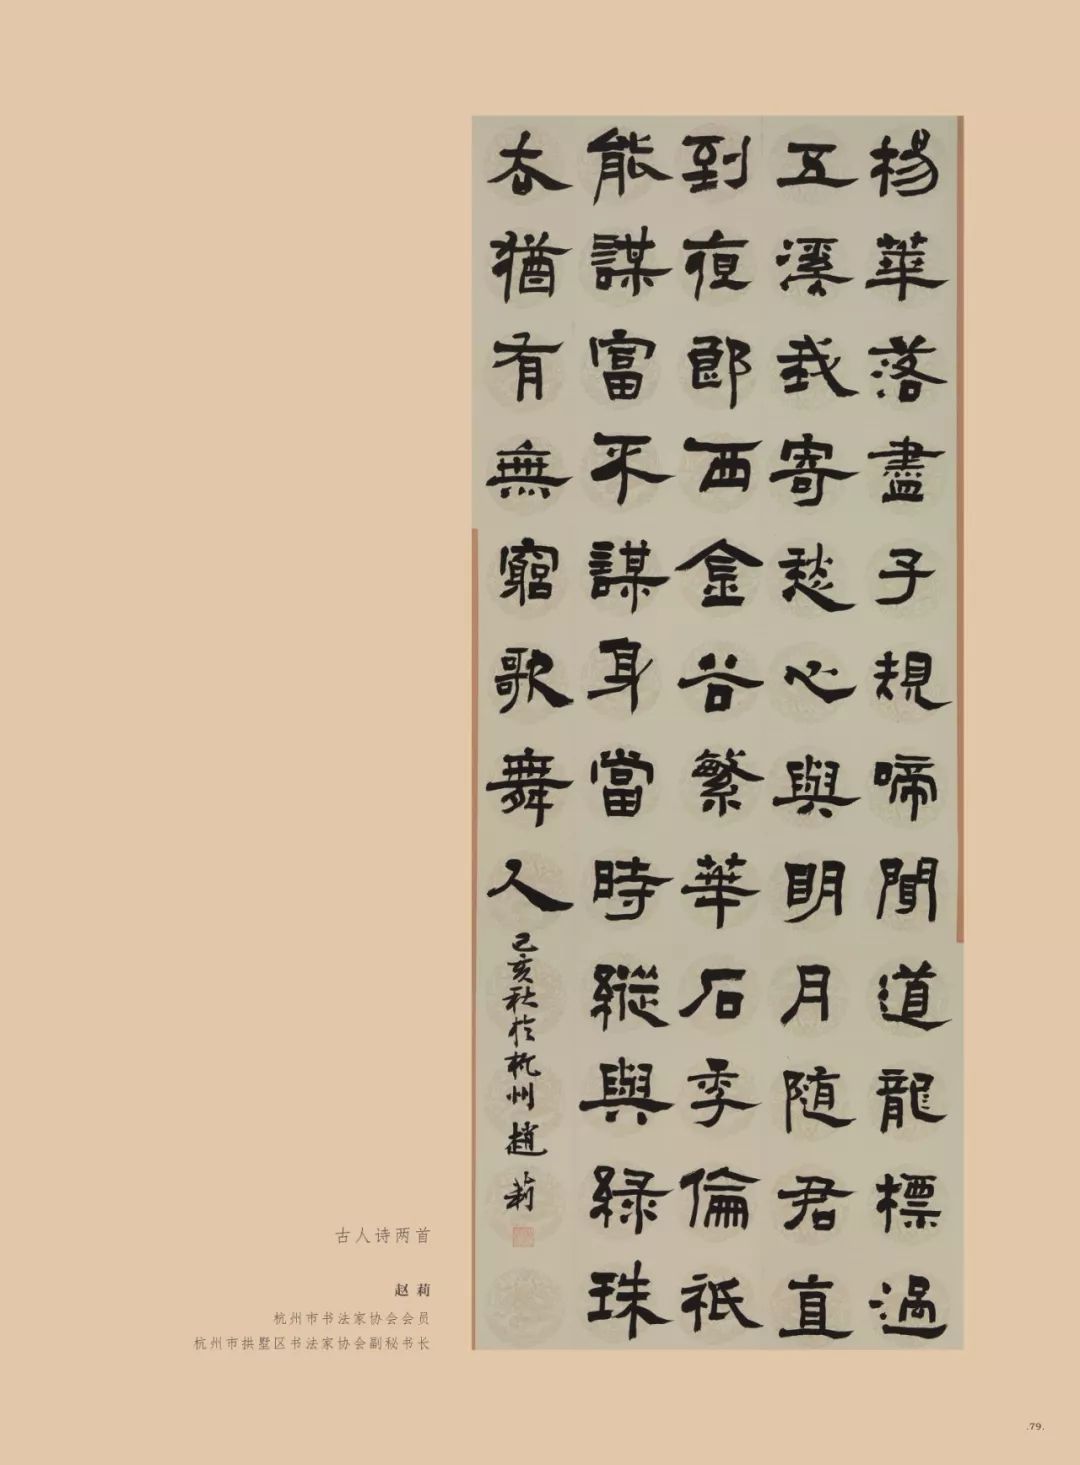 楊華落盡子規啼聞道龍標過
五溪我寄愁心與明月随君直
到夜郎西金谷繁華石季倫祇
能謀富不謀身當時縱與綠珠
去猶有無窮歌舞人
己亥秋於杭州趙莉
古人诗两首
赵莉
杭州市书法家协会会员
杭州市拱墅区书法家协会副秘书长
.79.